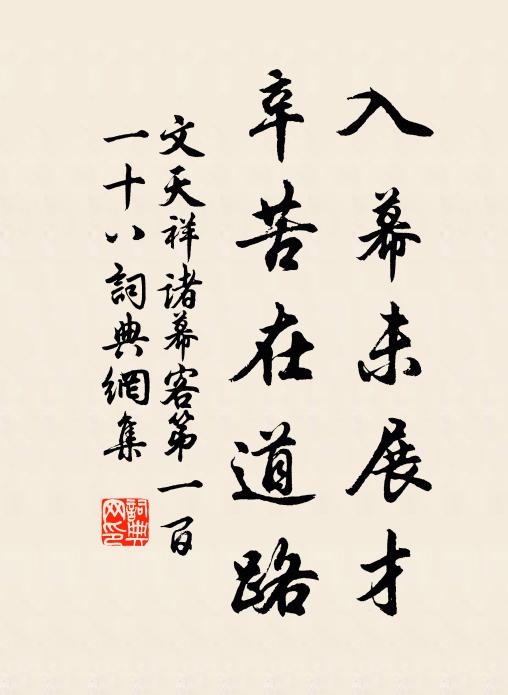 入幕未展才
辛苦在道路
文天祥诸幕客第一百
一十八詞典網集
詞典网印